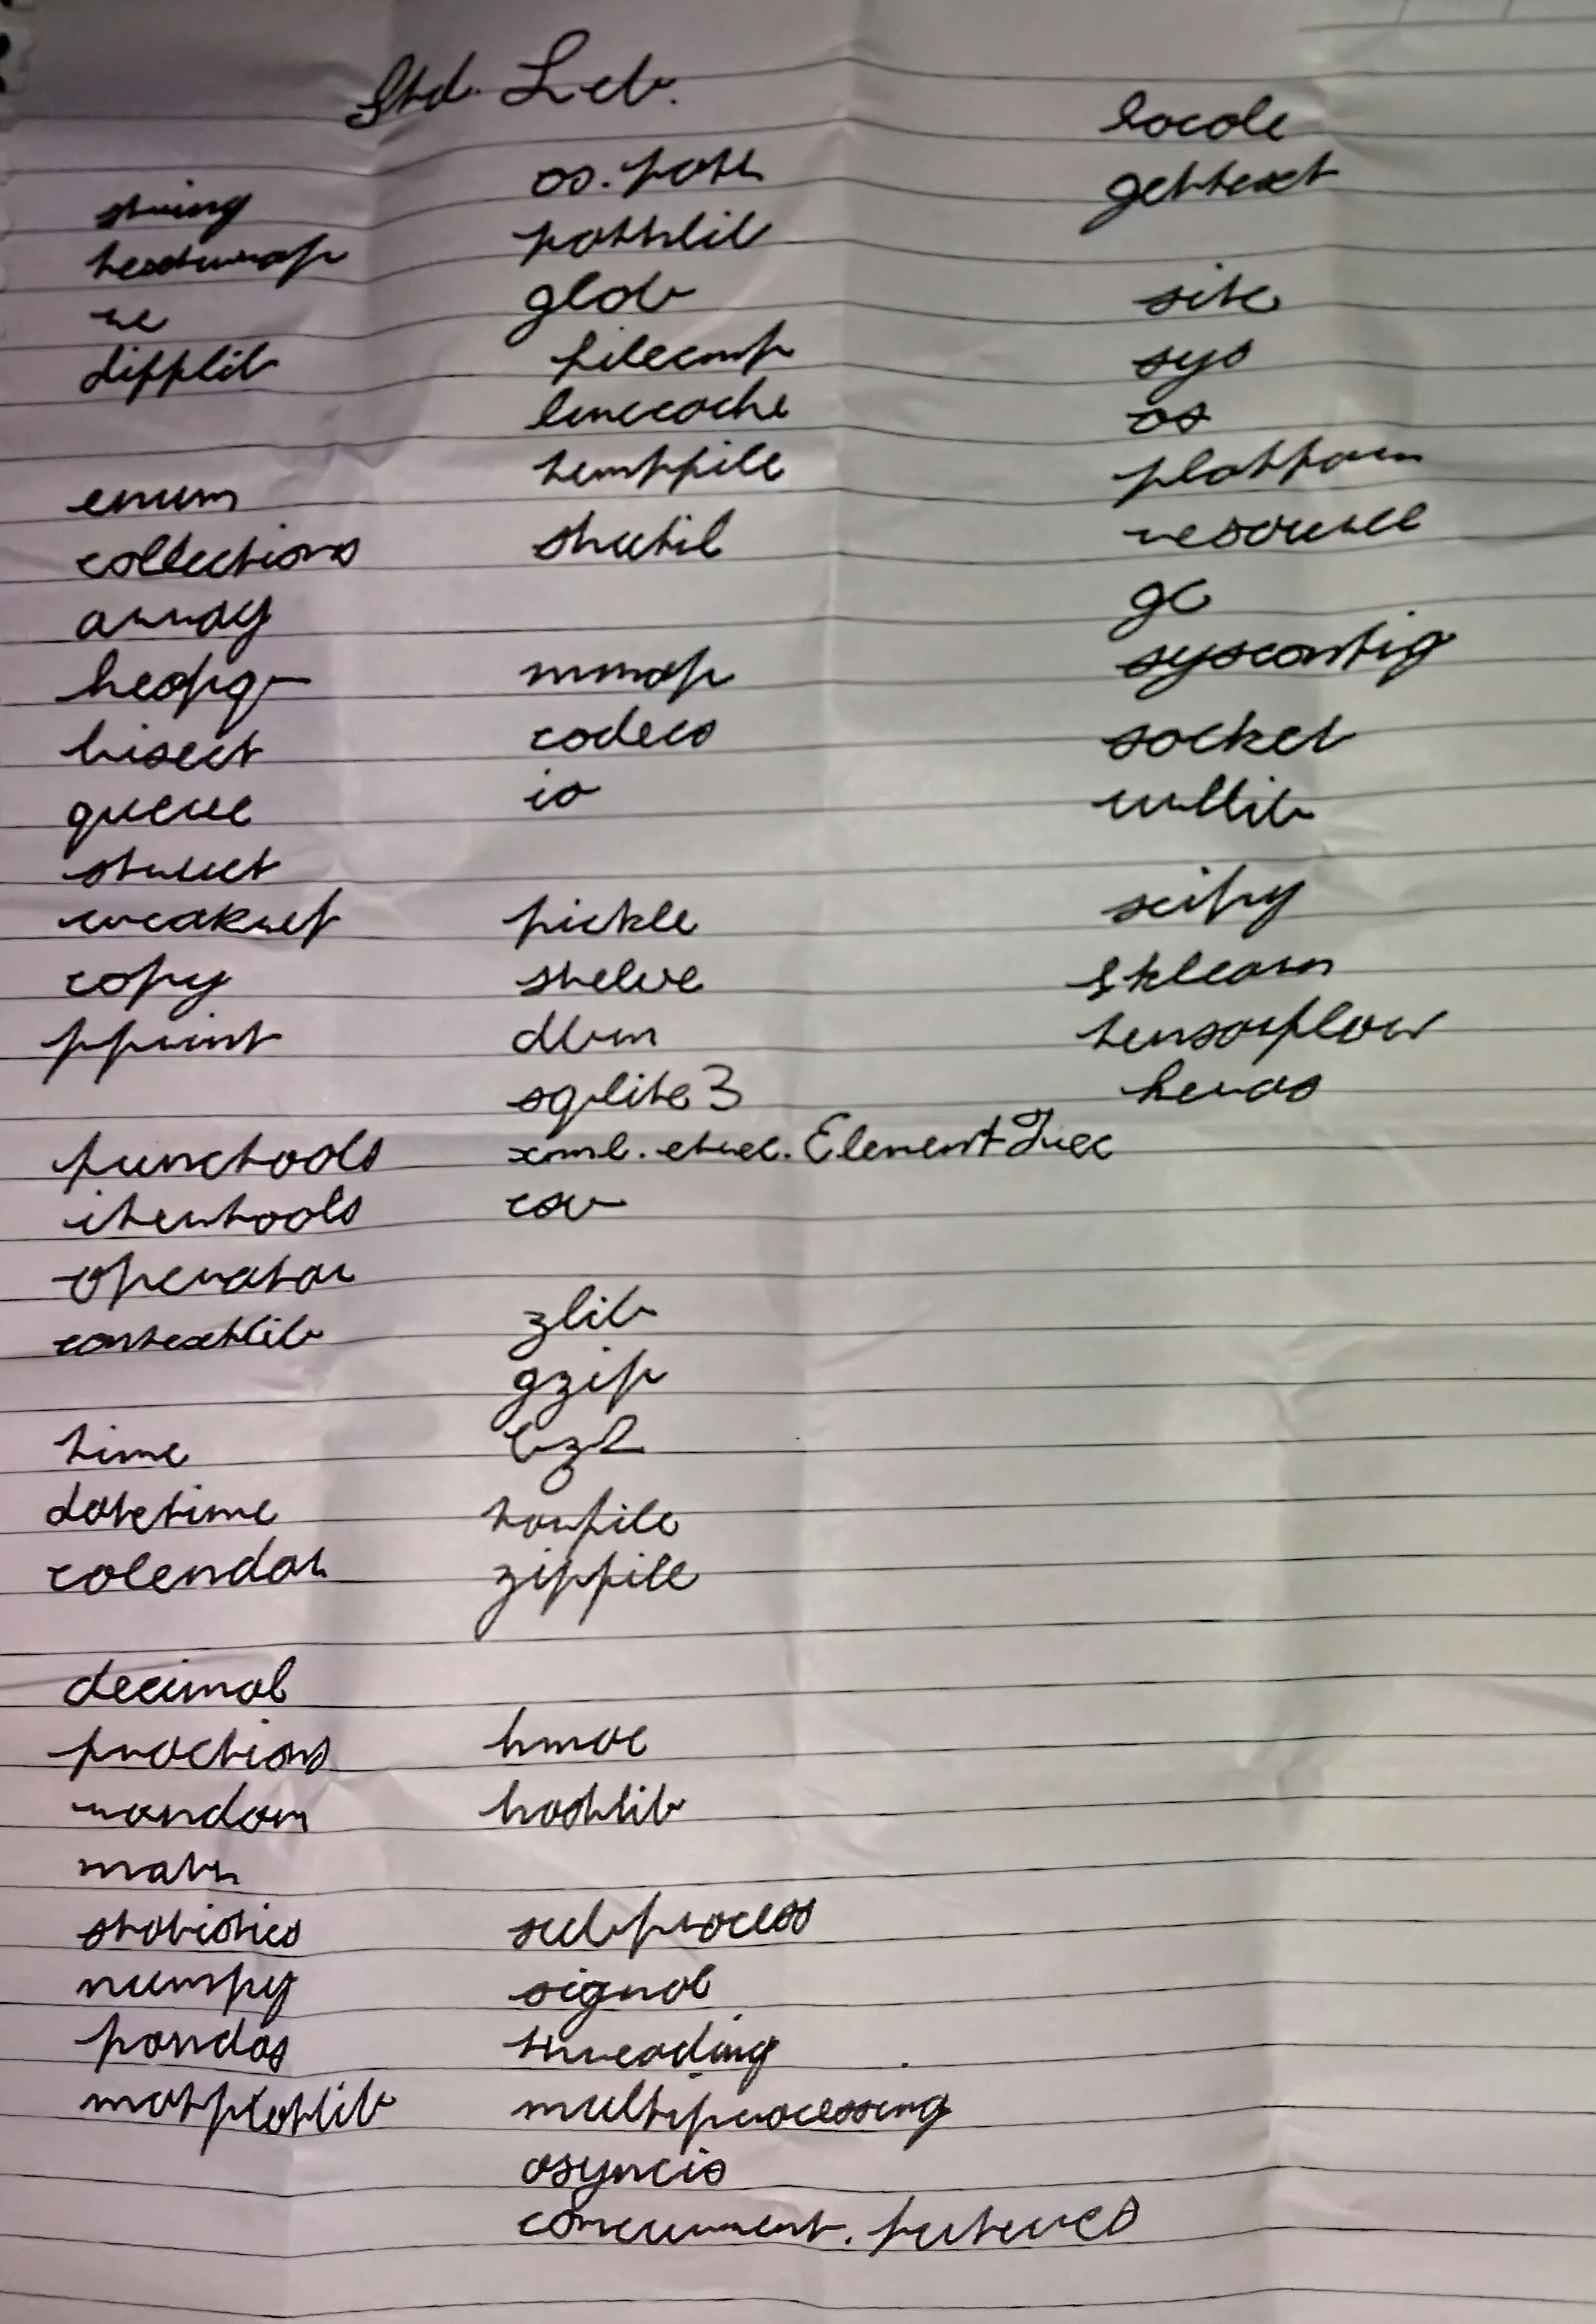 Std. Lib.
string
textwrap
re
difflib
enum
collections
array
heapq
bisect
queue
struct
weakref
copy
pprint
functools
itertools
operator
contextlib
time
datetime
calendar
decimal
fractions
random
math
statistics
numpy
pandas
matplotlib
os.path
pathlib
glob
filecmp
linecache
tempfile
shutil
mmap
codecs
io
pickle
shelve
dbm
sqlite3
xml.etree.ElementTree
csv
zlib
gzip
bz2
tarfile
zipfile
hmac
hashlib
subprocess
signal
threading
multiprocessing
asyncio
concurrent.futures
locale
gettext
site
sys
os
platform
resource
gc
sysconfig
socket
urllib
scipy
sklearn
tensorflow
keras